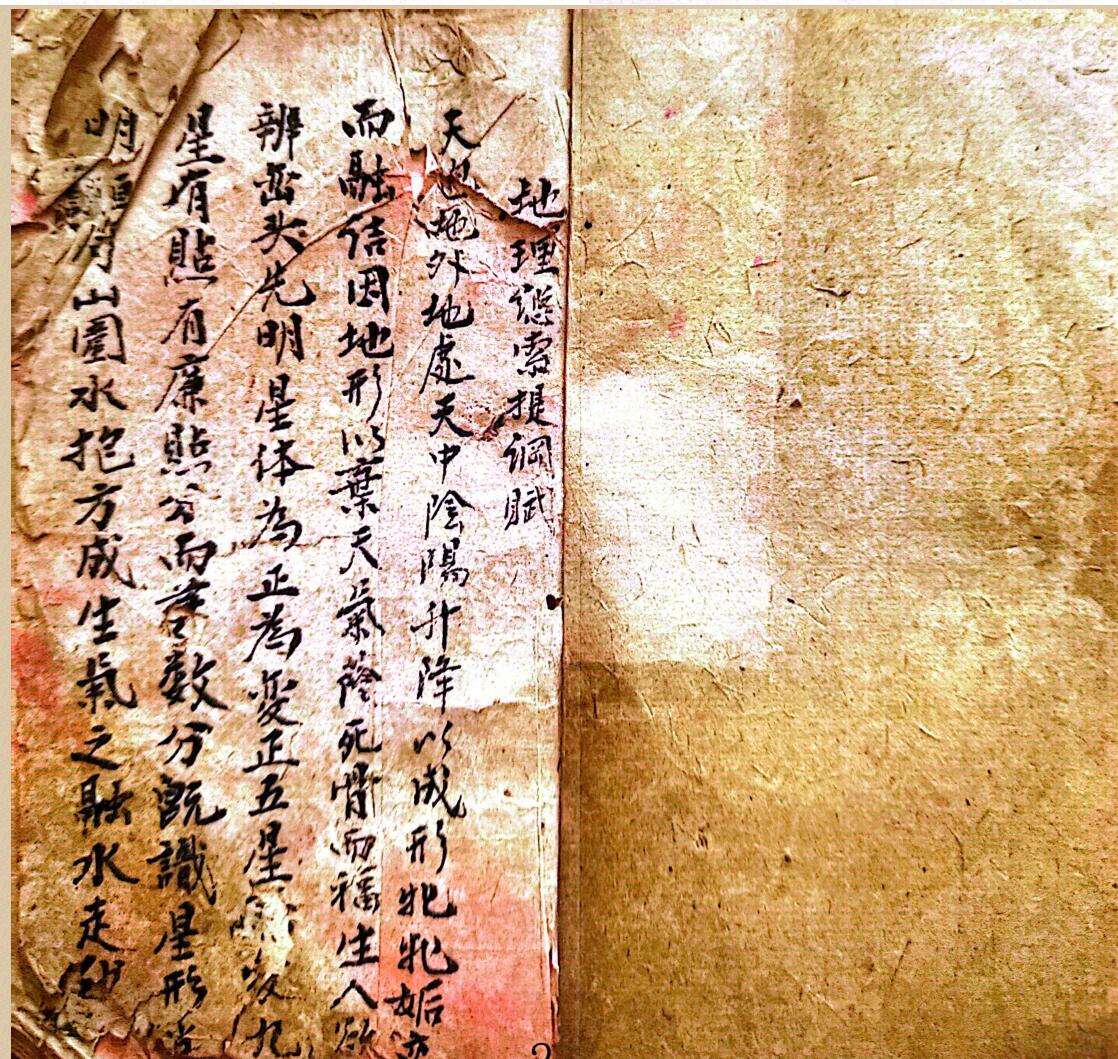 地理總索提綱賦
天包地外地處天中陰陽升降以成形牝牝姤
而融信因地形以葉天氣蔭死骨而福生人欲
辨巒头先明星体為正為変正五星変九
星有貼有廉貼分而數分既識星形
明山圍水抱方成生氣之融水走